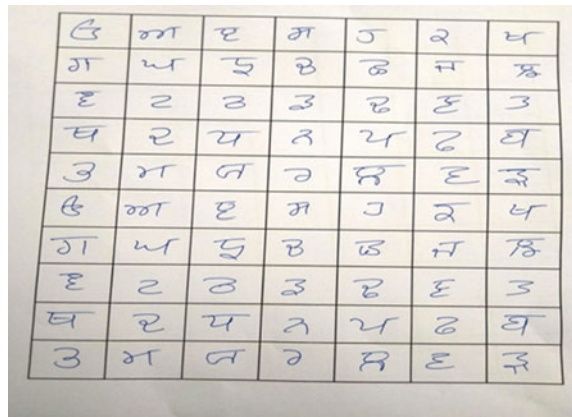 ੳ ਅ ੲ ਸ ਹ ਕ ਖ
ਗ ਘ ਙ ਚ ਛ ਜ ਝ
ਞ ਟ ਠ ਡ ਢ ਣ ਤ
ਥ ਦ ਧ ਨ ਪ ਫ ਬ
ਭ ਮ ਯ ਰ ਲ ਵ ੜ
ੳ ਅ ੲ ਸ ਹ ਕ ਖ
ਗ ਘ ਙ ਚ ਛ ਜ ਝ
ਞ ਟ ਠ ਡ ਢ ਣ ਤ
ਥ ਦ ਧ ਨ ਪ ਫ ਬ
ਭ ਮ ਯ ਰ ਲ ਵ ੜ